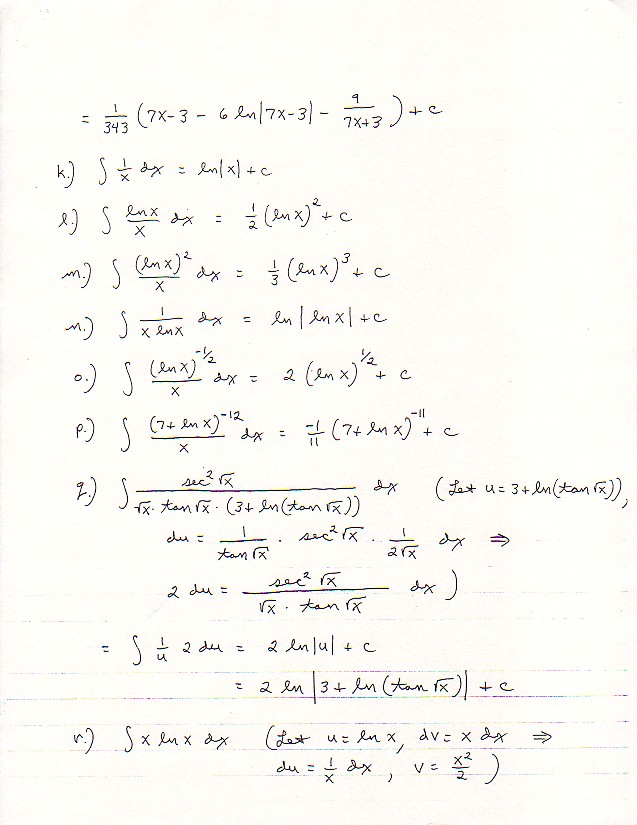 = 1/343 (7x-3 - 6 ln|7x-3| - 9/(7x+3)) + c
k.) ∫ 1/x dx = ln|x| + c
l.) ∫ (ln x)/x dx = 1/2 (ln x)² + c
m.) ∫ (ln x)²/x dx = 1/3 (ln x)³ + c
n.) ∫ 1/(x ln x) dx = ln |ln x| + c
o.) ∫ (ln x)^(-1/2)/x dx = 2 (ln x)^(1/2) + c
p.) ∫ (7+ ln x)^(-12)/x dx = -1/11 (7+ ln x)^(-11) + c
q.) ∫ sec² √x/(√x · tan √x · (3+ ln(tan √x))) dx (Let u = 3+ ln(tan √x)),
du = 1/(tan √x) · sec² √x · 1/(2√x) dx ⇒
2 du = sec² √x/(√x · tan √x) dx )
= ∫ 1/u 2 du = 2 ln|u| + c
= 2 ln |3+ ln (tan √x)| + c
r.) ∫ x ln x dx (Let u = ln x, dv = x dx ⇒
du = 1/x dx , v = x²/2 )